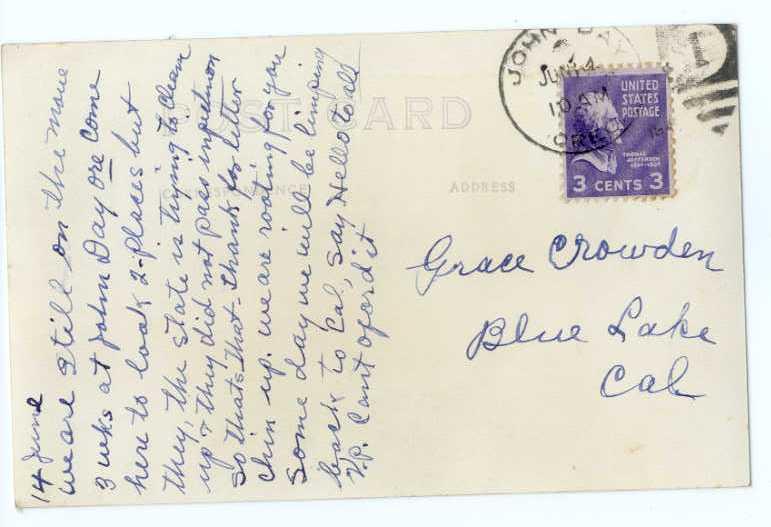 14 June
we are still on the move
3 wks at John Day ore come
here to look 2 places but
they, the state is trying to clean
up & they did not pass inspetion
so thats that - thank for letter
chin up. we are rooting for you
some day we will be limping
back to Cal, say Hello to all
Cant oford it
POST CARD
CORRESPONDENCE
ADDRESS
JOHN DAY
JUN 14
10 AM
OREG.
UNITED
STATES
POSTAGE
THOMAS
JEFFERSON
3 CENTS 3
Grace Crowden
Blue Lake
Cal